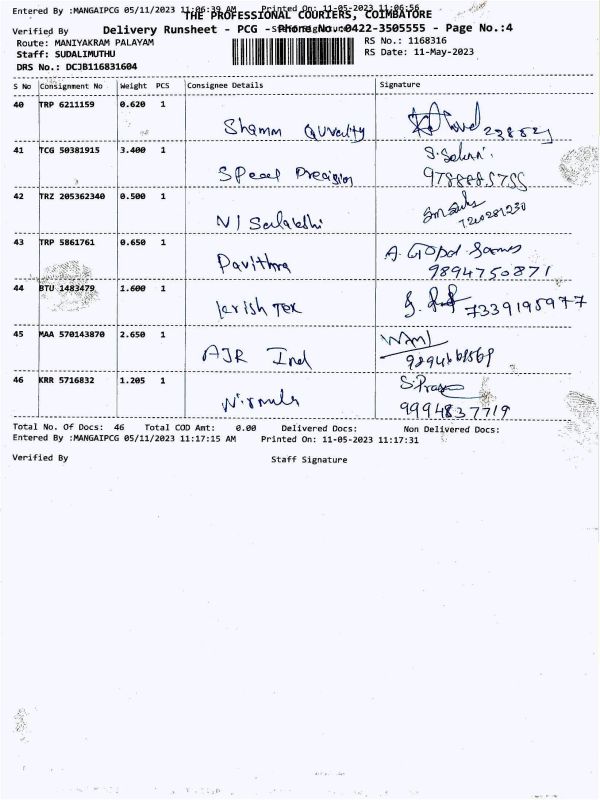 Entered By :MANGAIPCG 05/11/2023 11:06:39 AM Printed On: 11-05-2023 11:06:56
THE PROFESSIONAL COURIERS, COIMBATORE
Verified By Staff Signature
Delivery Runsheet - PCG - Phone No.:0422-3505555 - Page No.:4
Route: MANIYAKRAM PALAYAM RS No.: 1168316
Staff: SUDALIMUTHU RS Date: 11-May-2023
DRS No.: DCJB116831604
S No Consignment No Weight PCS Consignee Details Signature
40 TRP 6211159 0.620 1
Shamm
41 TCG 50381915 3.400 1
Precision
42 TRZ 205362340 0.500 1
43 TRP 5861761 0.650 1
Pavithra A. Gopal
9894750871
44 BTU 1483479 1.600 1
7339195977
45 MAA 570143870 2.650 1
AJR Ind
46 KRR 5716832 1.205 1
9994837719
Total No. Of Docs: 46 Total COD Amt: 0.00 Delivered Docs: Non Delivered Docs:
Entered By :MANGAIPCG 05/11/2023 11:17:15 AM Printed On: 11-05-2023 11:17:31
Verified By Staff Signature